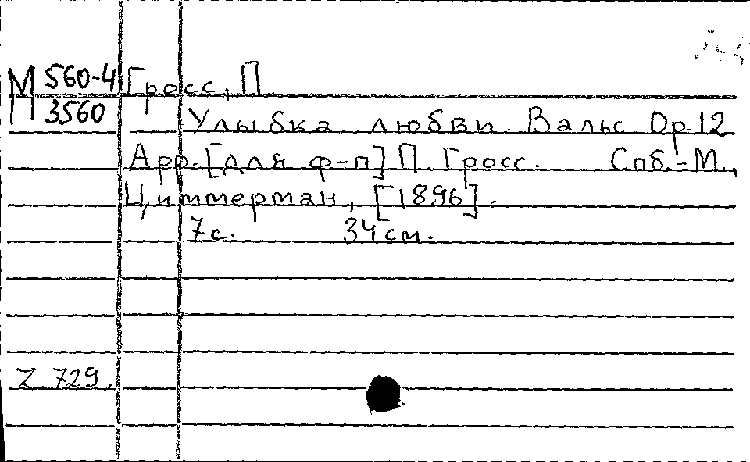 М 560-4
3560
Гросс, П.
Улыбка любви. Вальс. Op. 12
Арр. [для ф-п] П. Гросс. Спб.-М.,
Циммерман, [1896].
7 с. 34 см.
Z 729.